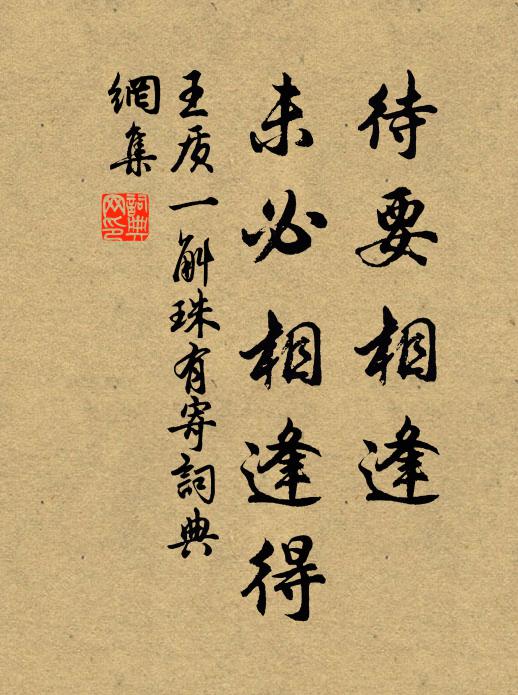 待要相逢
未必相逢得
王质一斛珠有寄詞典
網集
詞典网印